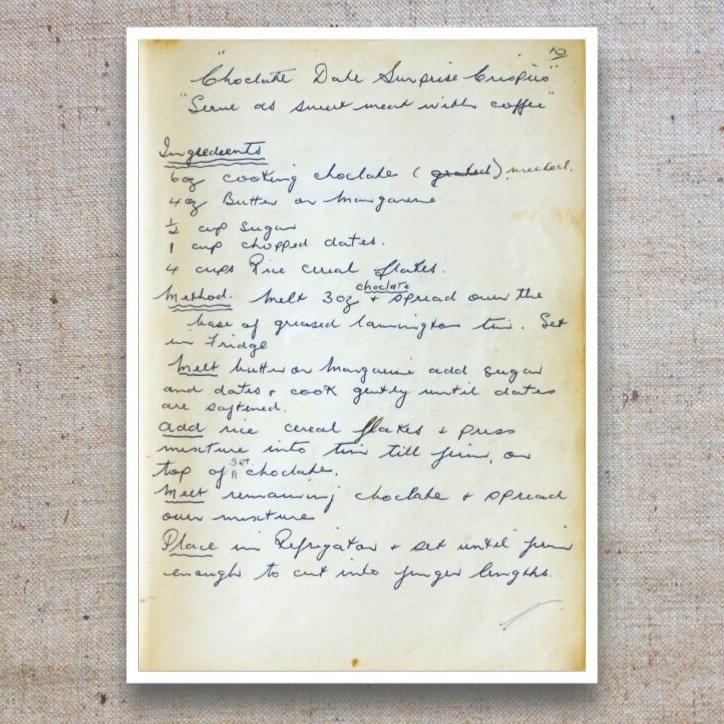 10
"Choclate Date Surprise Crispies"
"Serve as sweet meat with coffee"
Ingredients
6oz cooking choclate (grated) melted.
4oz Butter or Margarine
½ cup sugar
1 cup chopped dates.
4 cups Rice cereal flakes.
Method. Melt 3oz choclate + spread over the
base of greased lamington tin. Set
in Fridge
Melt butter or Margarine add sugar
and dates + cook gently until dates
are softened.
Add rice cereal flakes + press
mixture into tin till firm, on
top of set choclate.
Melt remaining choclate + spread
over mixture
Place in Refrigator + set until firm
enough to cut into finger lengths.